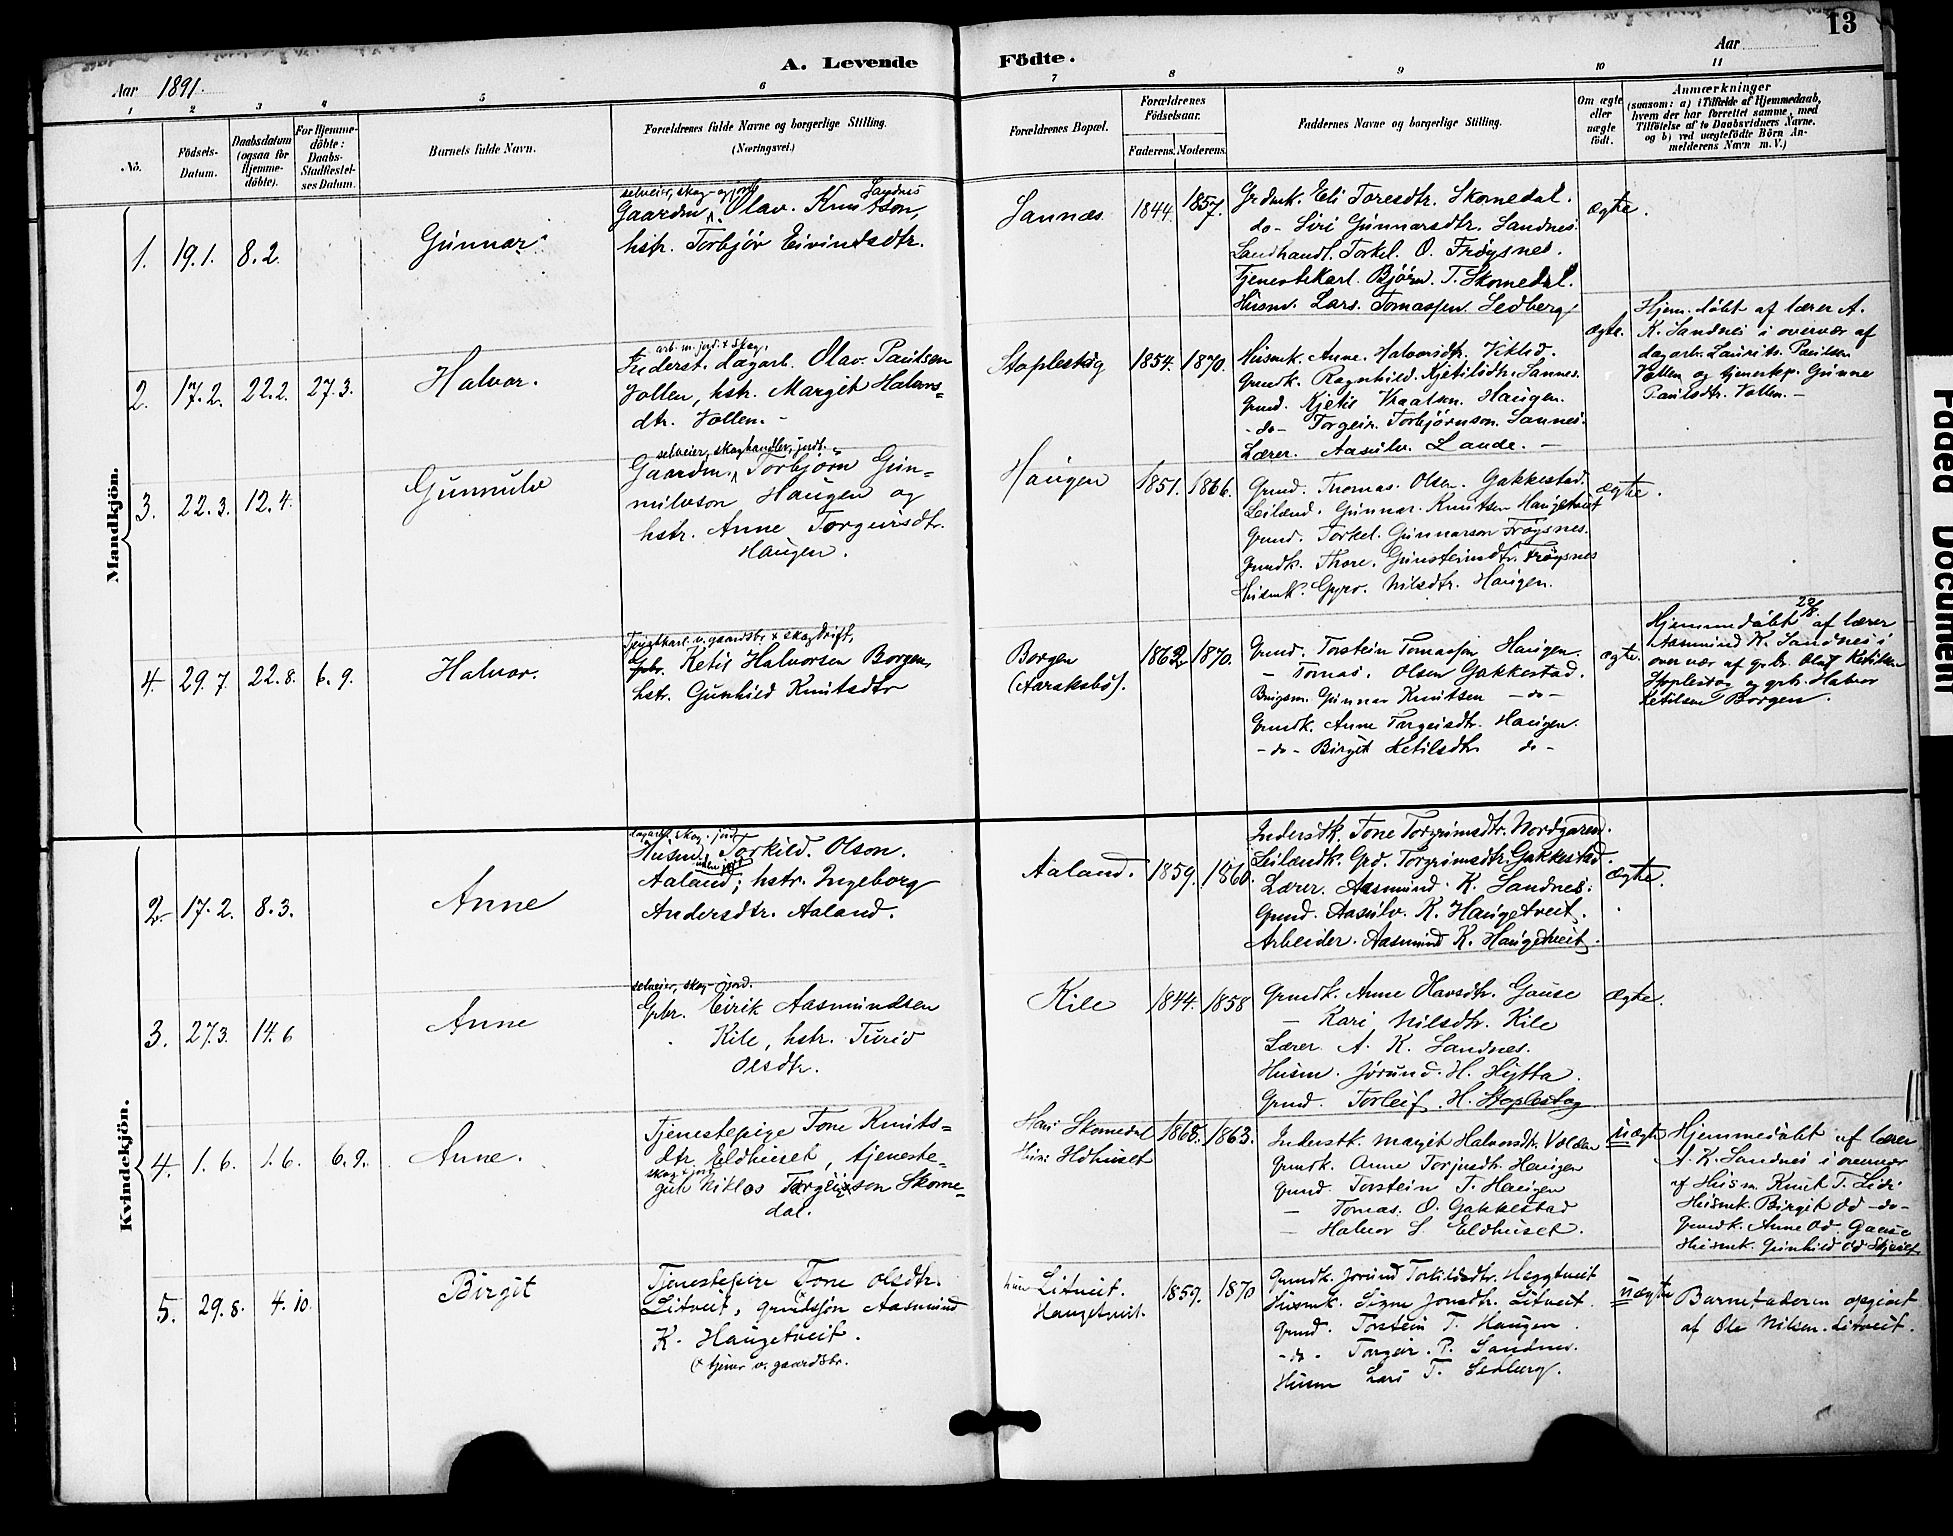 13
A. Levende Födte.
Aar 1891.
Aar
1 2 3 4 5 6 7 8 9 10 11
No.
Födsels-Datum.
Daabsdatum (ogsaa for Hjemme-döbte).
For Hjemme-döbte: Daabs-Stadfæstel-ses Datum.
Barnets fulde Navn.
Forældrenes fulde Navne og borgerlige Stilling.
(Næringsvei.)
Forældrenes Bopæl.
Forældrenes Födselsaar.
Faderens. Moderens.
Faddernes Navne og borgerlige Stilling.
Om ægte eller uægte födt.
Anmærkninger
(saasom: a) i Tilfælde af Hjemmedaab,
hvem der har forrettet samme, med
Tilföielse af to Daabsvidners Navne.
og b) ved uægtefödte Börn An-
melderens Navn m. V.)
Mandkjön.
1. 19.1. 8.2.
Gunnar.
selveier, skog- og jord Sandnes
Gaardm. Olav. Knutson,
hstr. Torbjör Eivindsdtr.
Sannæs.
1844. 1857.
Grdmk. Eli Toresdtr. Skomedal.
do- Siri Gunnarsdtr. Sandnes.
Landhandl. Torkel. O. Frøysnes.
Tjenestekarl. Bjørn T. Skomedal.
Husm. Lars. Tomassen. Sedberg.
ægte.
2. 17.2. 22.2. 27.3.
Halvor.
arb. m. jord. & skog,
Inderst. Dagarb. Olav. Paulsen
Vollen, hstr. Margit Halvors-
dtr. Vollen.-
Stoplestøg
1854. 1870.
Husmk. Anne. Halvorsdtr. Viklid.
Grmdk. Ragnhild. Kjetilsdtr. Sannes.
Grmd. Kjetil Kraalsen. Haugen.
-do- Torgeir. Torbjørnson. Sannes.
Lærer. Aasulv. Lande.-
ægte.
Hjem. døbt af lærer A.
K. Sandnes i overvær af
dagarb. Laurits. Paulsen
Vollen og tjenestp. Gunne
Paulsdtr. Vollen.-
3. 22.3. 12.4.
Gunnulv
selveier, skoghandler, jordb.
Gaardm. Torbjørn Gun-
nulvson Haugen og
hstr. Anne Torgeirsdtr.
Haugen.
Haugen
1851. 1866.
Grmd. Thomas. Olsen. Gakkestad.
Leilænd. Gunnar. Knutsen Haugetveit
Grmd. Torkel. Gunnarson Frøysnes.
Grmdk. Thore. Gunsteinsdtr. Frøysnes
Husmk. Gyro. Nilsdtr. Haugen.
ægte.
4. 29.7. 22.8. 6.9.
Halvor.
Tjenstkarl. v. gaardsbr. & skogdrift,
Gbr. Ketil Halvorsen Borgen,
hstr. Gunhild Knutsdtr
Borgen
(Aaraksbø).
1862 1870.
Grmd. Torstein Tomassen Haugen.
- Tomas. Olsen Gakkestad.
Brugsm. Gunnar Knutsen -do-
Grmdk. Anne Torgeirsdtr. Haugen.
-do- Birgit Ketilsdtr do-
ægte
22/8.
Hjemmedøbt af lærer
Aasmund K. Sandnes i
overvær af gbr. Olaf Ketilsen
Stoplestøg og gbr. Halvor
Ketilsen Borgen.
Kvindekjön.
2. 17.2. 8.3.
Anne
dagarb. skog. jord.
Husm. Torkild. Olson.
uden jord
Aaland; hstr. Ingeborg
Andersdtr. Aaland.
Aaland.
1859. 1860.
Inderstk. Tone Torgrimsdtr. Nordgaren.
Leilændk. Gro. Torgrimsdtr. Gakkestad.
Lærer. Aasmund. K. Sandnes.
Grmd. Aasulv. K. Haugetveit.
Arbeider. Aasmund K. Haugetveit.
ægte.
3. 27.3. 14.6
Anne
selveier, skog- jord.
Gbr. Eirik Aasmundsen
Kile, hstr. Turid
Olsdtr.
Kile
1844. 1858
Grmdk. Anne Olavsdtr. Gause
- Kari Nilsdtr. Kile
Lærer A. K. Sandnes.
Husm. Jørund. H. Hytta.
Grmd. Torleif. H. Stoplestøg
ægte.
4. 1.6. 1.6. 6.9.
Anne.
Tjenestepige Tone Knuts-
dtr Eldhuset, tjeneste-
skog & jord
gut Niklos Torgeirson Skome-
dal.
Han: Skomedal
Hun: Eldhuset
1868. 1863.
Inderstk. Margit Halvorsdtr. Volden
Grmdk. Anne Torjusdtr. Haugen
Grmd. Torstein T. Haugen
- Tomas. O. Gakkestad
- Halvor S. Eldhuset.
uægte
Hjemmedøbt af lærer
A. K. Sandnes i overvær
af Husm. Knut T. Lid.
Husmk. Birgit Od -do-
Grmdk. Anne Od. Gause
Husmk. Gunhild Od
5. 29.8. 4.10.
Birgit
Tjenestepige Tone Olsdtr.
Litveit, grmdssjøn Aasmund
K. Haugetveit.
(& tjener v. gaardsbr.
hun Litveit.
Haugetveit.
1859. 1870
Grmdk. Jorund Torkildsdtr. Heggtveit
Husmk. Signe Jonsdtr. Litveit.
Grmd. Torstein T. Haugen.
-do- Torgeir. P. Sandnes.
Husm Lars T. Sedberg.
uægte
Barnefaderen opgivet
af Ole Nilsen. Litveit.
Faded Document